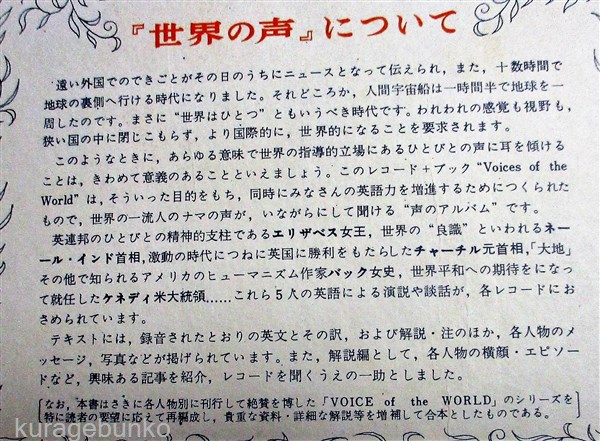 『世界の声』について
遠い外国でのできごとがその日のうちにニュースとなって伝えられ，また，十数時間で
地球の裏側へ行ける時代になりました。それどころか，人間宇宙船は一時間半で地球を一
周したのです。まさに“世界はひとつ”ともいうべき時代です。われわれの感覚も視野も，
狭い国の中に閉じこもらず，より国際的に，世界的になることを要求されます。
このようなときに，あらゆる意味で世界の指導的立場にあるひとびとの声に耳を傾ける
ことは，きわめて意義のあることといえましょう。このレコード＋ブック“Voices of the
World”は，そういった目的をもち，同時にみなさんの英語力を増進するためにつくられ
たもので，世界の一流人のナマの声が，いながらにして聞ける“声のアルバム”です。
英連邦のひとびとの精神的支柱であるエリザベス女王，世界の“良識”といわれるネー
ール・インド首相，激動の時代につねに英国に勝利をもたらしたチャーチル元首相，「大地」
その他で知られるアメリカのヒューマニズム作家バック女史，世界平和への期待をになっ
て就任したケネディ米大統領……これら5人の英語による演説や談話が，各レコードにお
さめられています。
テキストには，録音されたとおりの英文とその訳，および解説・注のほか，各人物のメ
ッセージ，写真などが掲げられています。また，解説編として，各人物の横顔・エピソー
ドなど，興味ある記事を紹介，レコードを聞くうえの一助としました。
［なお，本書はさきに各人物別に刊行して絶賛を博した「VOICE of the WORLD」のシリーズを
特に読者の要望に応えて再編成し，貴重な資料・詳細な解説等を増補して合本としたものである。］
kuragebunko